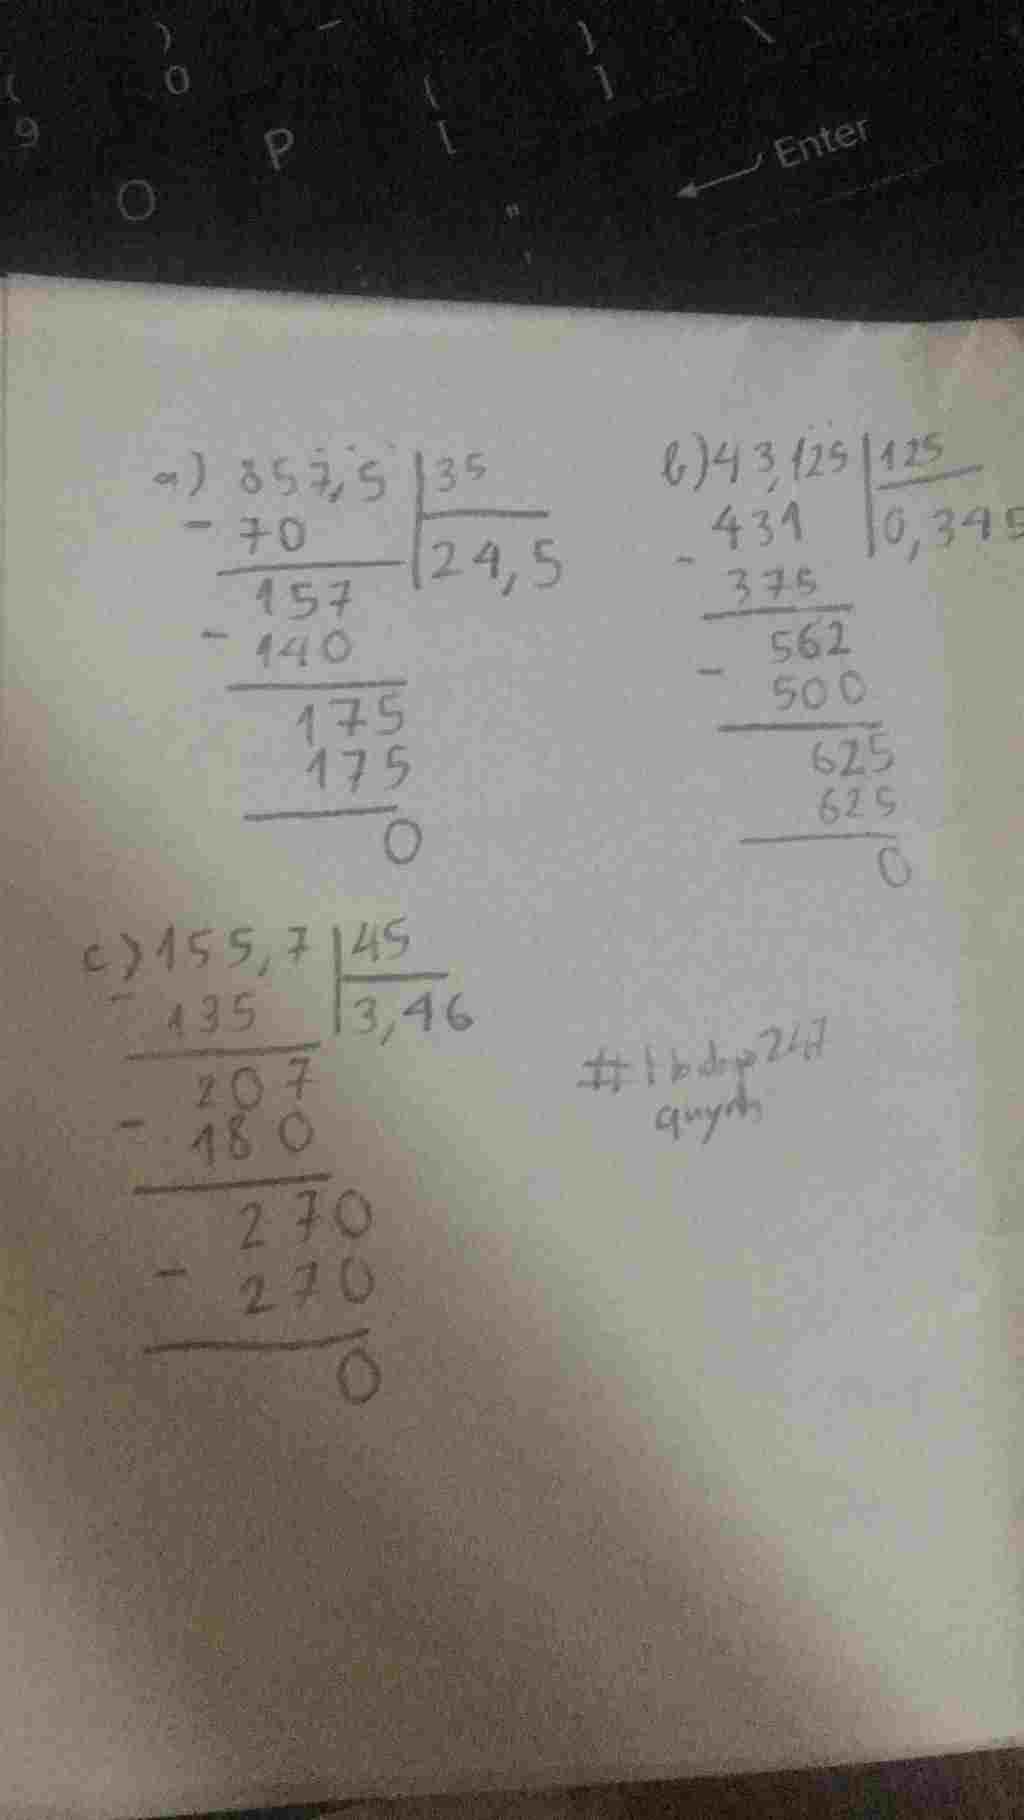 ) _ } \
( 0 { ]
9 P [
O " Enter
'
a) 857,5 35
- 70 24,5
157
- 140
175
175
0
b) 43,125 125
431 0,345
- 375
562
- 500
625
625
0
c) 155,7 45
- 135 3,46
207
- 180
270
- 270
0
247
quynh